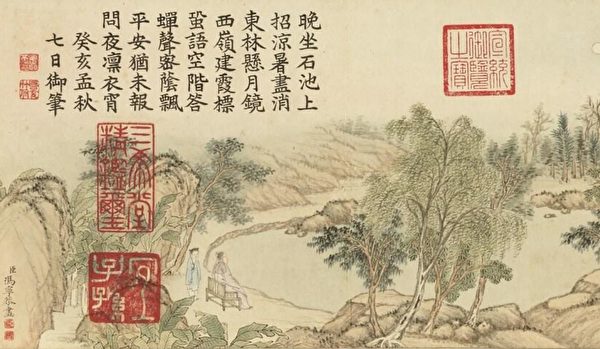 宣統
御覽
之寶
晚坐石池上
招涼暑盡消
東林懸月鏡
西嶺建霞標
蛩語空階答
蟬聲密蔭飄
平安猶未報
問夜凜衣宵
癸亥孟秋
七日御筆
三希堂
精鑑璽
宜
子孫
臣馮寧恭畫